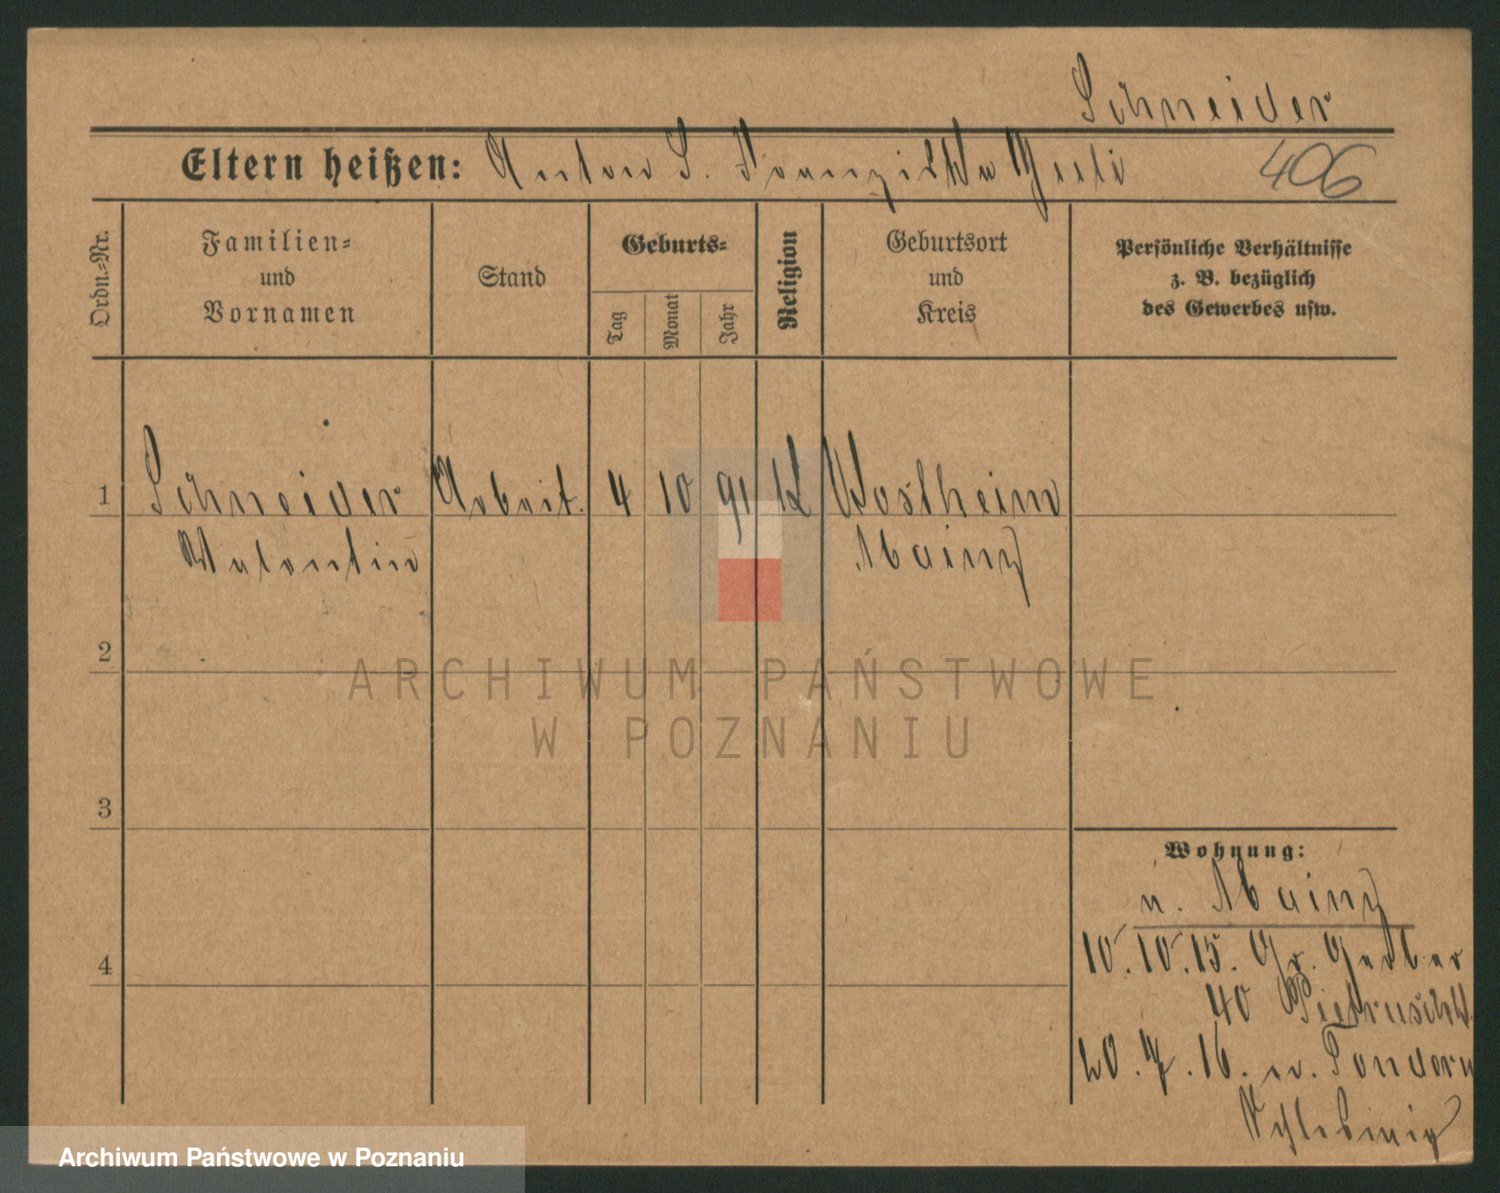 Schneider
Eltern heißen: Anton S. Franziska 406
Ordn.=Nr.
Familien=
und
Vornamen
Stand
Geburts=
Tag
Monat
Jahr
Religion
Geburtsort
und
Kreis
Persönliche Verhältnisse
z. B. bezüglich
des Gewerbes usw.
1 Schneider Arbeit. 4 10 91 K Kostheim
Valentin Mainz
2
ARCHIWUM PAŃSTWOWE
W POZNANIU
3
Wohnung:
n. Mainz
4
10.10.15. Gr. Gerber
40 Pietruschk.
20.7.16. n. Tondern
Schleswig
Archiwum Państwowe w Poznaniu